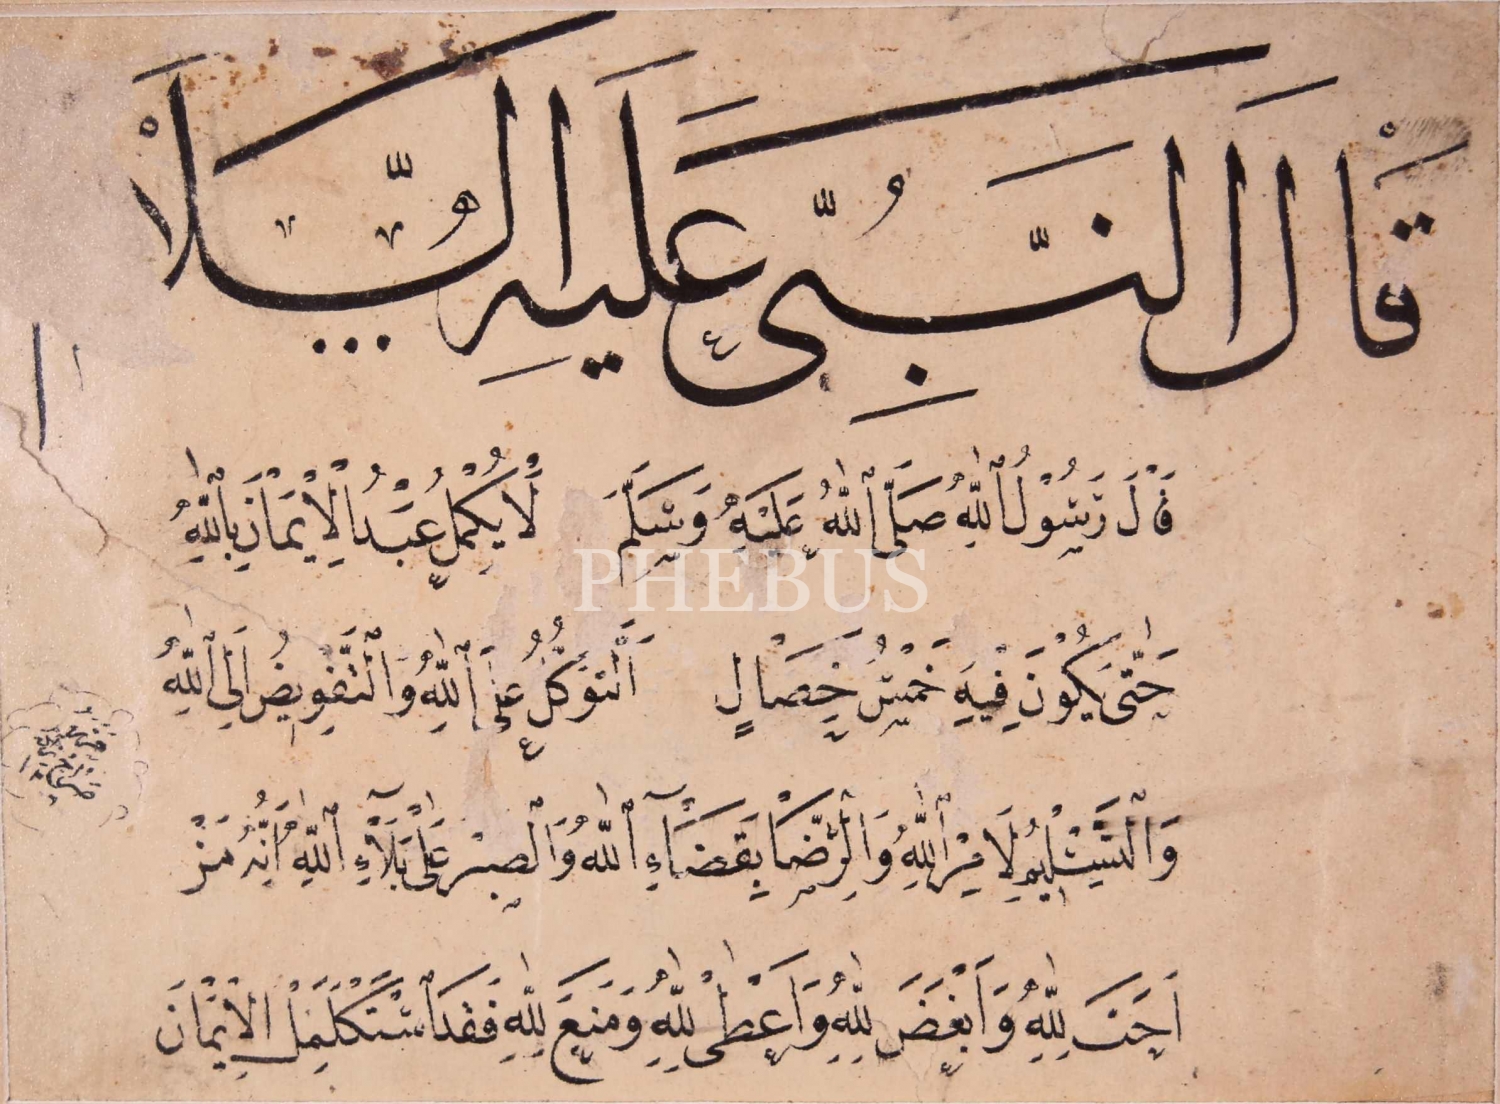 قَالَ النَّبِىِّ عَلَيْهِ السَّلَا
قَالَ رَسُولُ اللّٰهِ صَلَّى اللّٰهُ عَلَيْهِ وَسَلَّمَ لَا يَكْمُلُ عَبْدُ الْاِيْمَانَ بِاللّٰهِ
حَتّٰى يَكُونَ فِيْهِ خَمْسُ خِصَالٍ اَلتَّوَكُّلُ عَلَى اللّٰهِ وَالتَّفْوِيضُ اِلَى اللّٰهِ
وَالتَّسْلِيْمُ لِاَمْرِ اللّٰهِ وَالرِّضَا بِقَضَآءِ اللّٰهِ وَالصَّبْرُ عَلٰى بَلَآءِ اللّٰهِ اِنَّهُ مَنْ
اَحَبَّ لِلّٰهِ وَاَبْغَضَ لِلّٰهِ وَاَعْطٰى لِلّٰهِ وَمَنَعَ لِلّٰهِ فَقَدِ اسْتَكْمَلَ الْاِيْمَانَ
PHEBUS